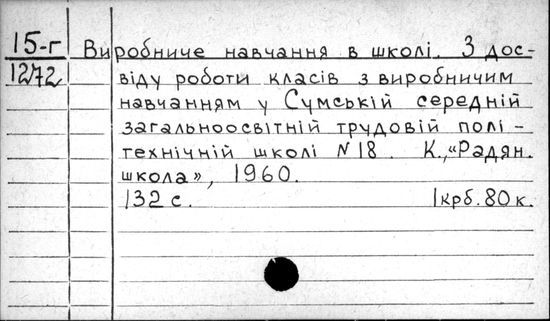 15-г Виробниче навчання в школі. З дос-
12/72 віду роботи класів з виробничим
навчанням у Сумській середній
загальноосвітній трудовій полі-
технічній школі N 18. К., «Радян.
школа», 1960.
132 с. 1 крб. 80 к.